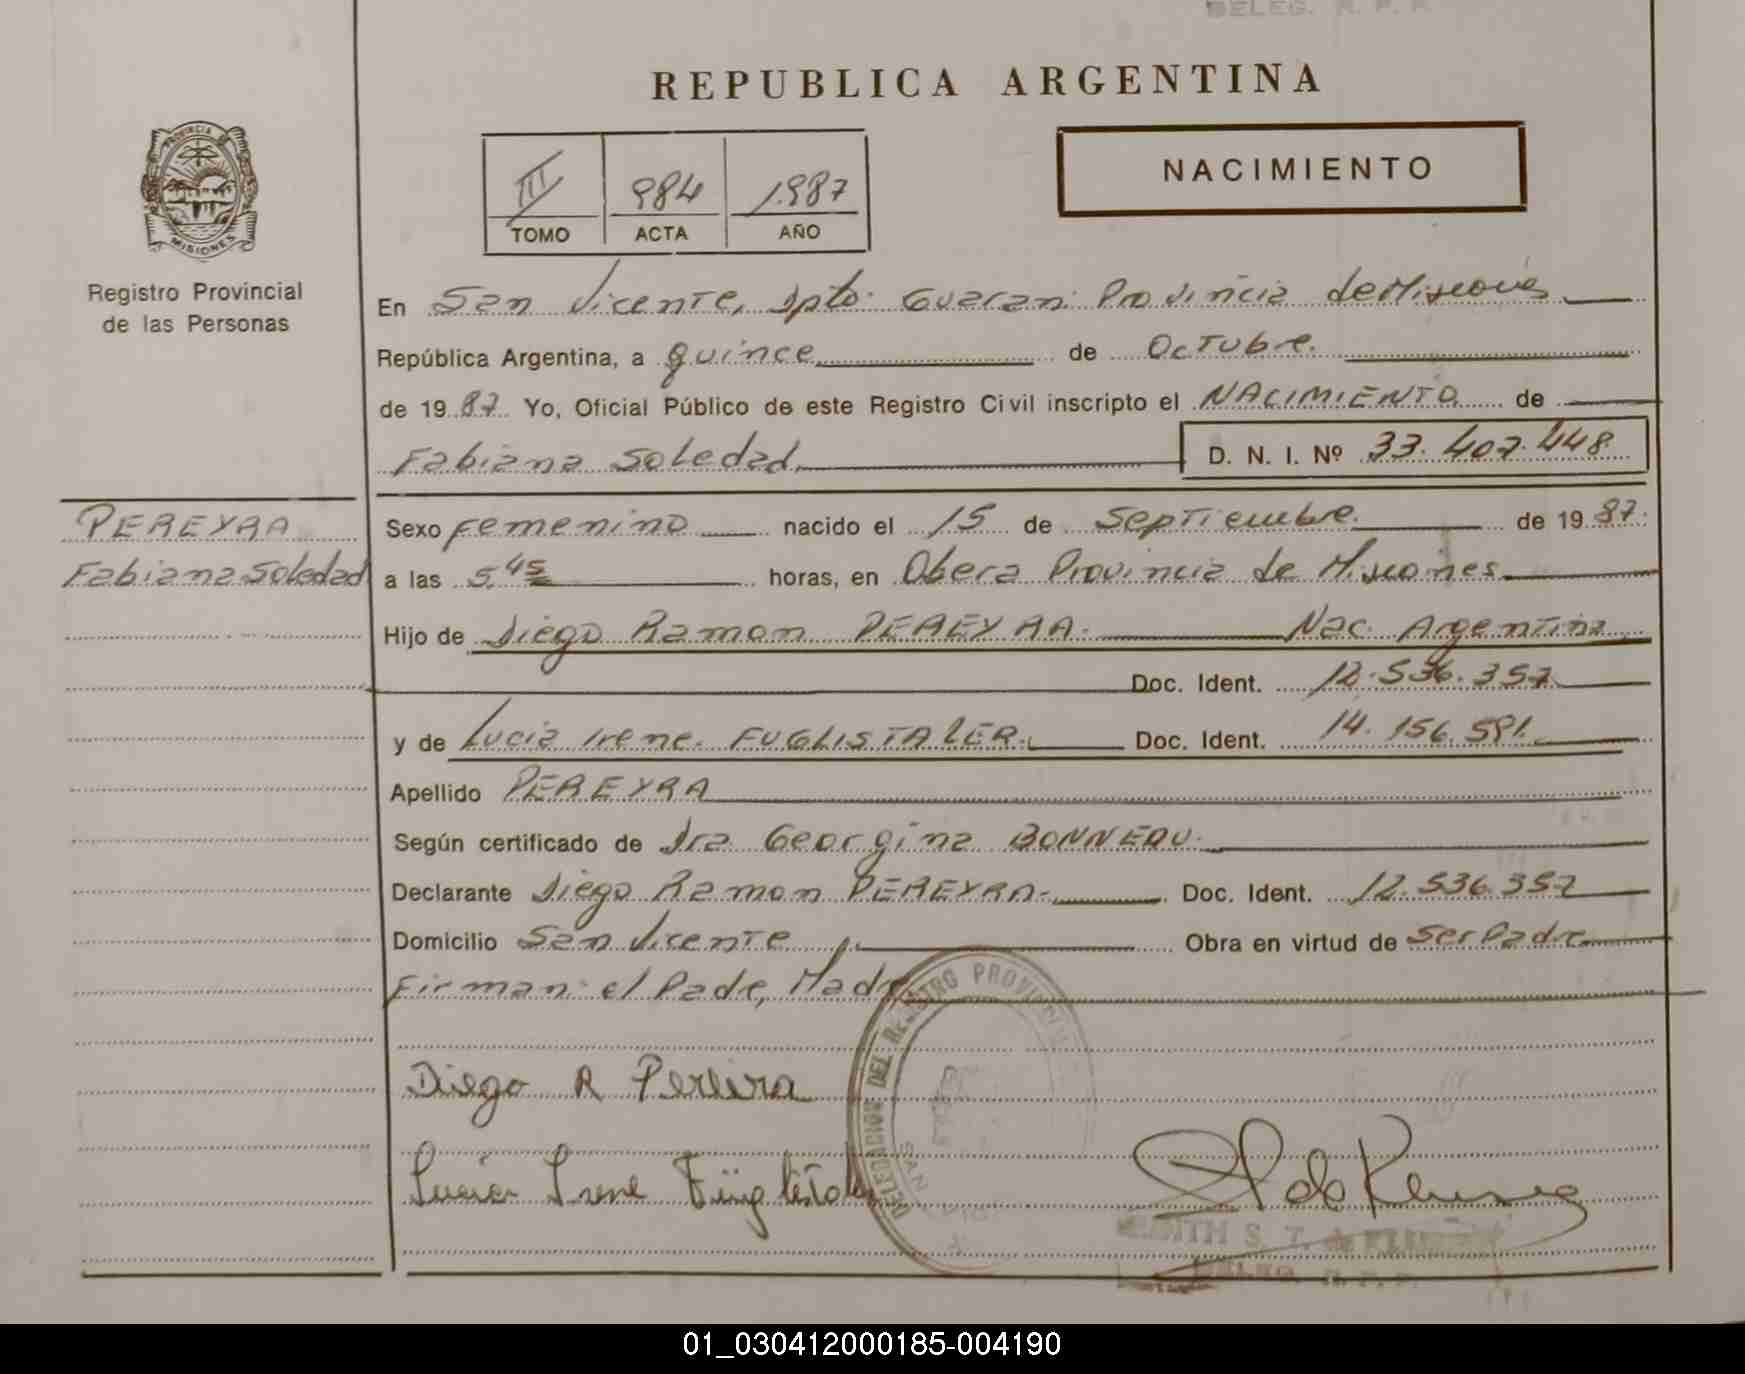 REPUBLICA ARGENTINA
NACIMIENTO
III 984 1.987
TOMO ACTA AÑO
PROVINCIA DE
MISIONES
Registro Provincial
de las Personas
En San Vicente, Dpto. Guarani Provincia de Misiones
República Argentina, a quince de Octubre.
de 19 87 Yo, Oficial Público de este Registro Civil inscripto el NACIMIENTO de
Fabiana Soledad. D. N. I. Nº 33.407.448
PEREYRA
Fabiana Soledad
Sexo femenino nacido el 15 de Septiembre. de 19 87.
a las 5,45 horas, en Obera Provincia de Misiones
Hijo de Diego Ramon PEREYRA. Nac. Argentina
Doc. Ident. 12.536.357
y de Lucia Irene. FUGLISTALER. Doc. Ident. 14.156.591.
Apellido PEREYRA
Según certificado de Dra Georgina BONNEAU.
Declarante Diego Ramon PEREYRA- Doc. Ident. 12.536.357
Domicilio San Vicente Obra en virtud de Ser Padre
Firman: el Pade, Madre
DELEGACION DEL REGISTRO PROVINCIAL
SAN VIC
Diego R Pereira
Lucia Irene
S. T. de
DELEG. R. P. P.
01_030412000185-004190